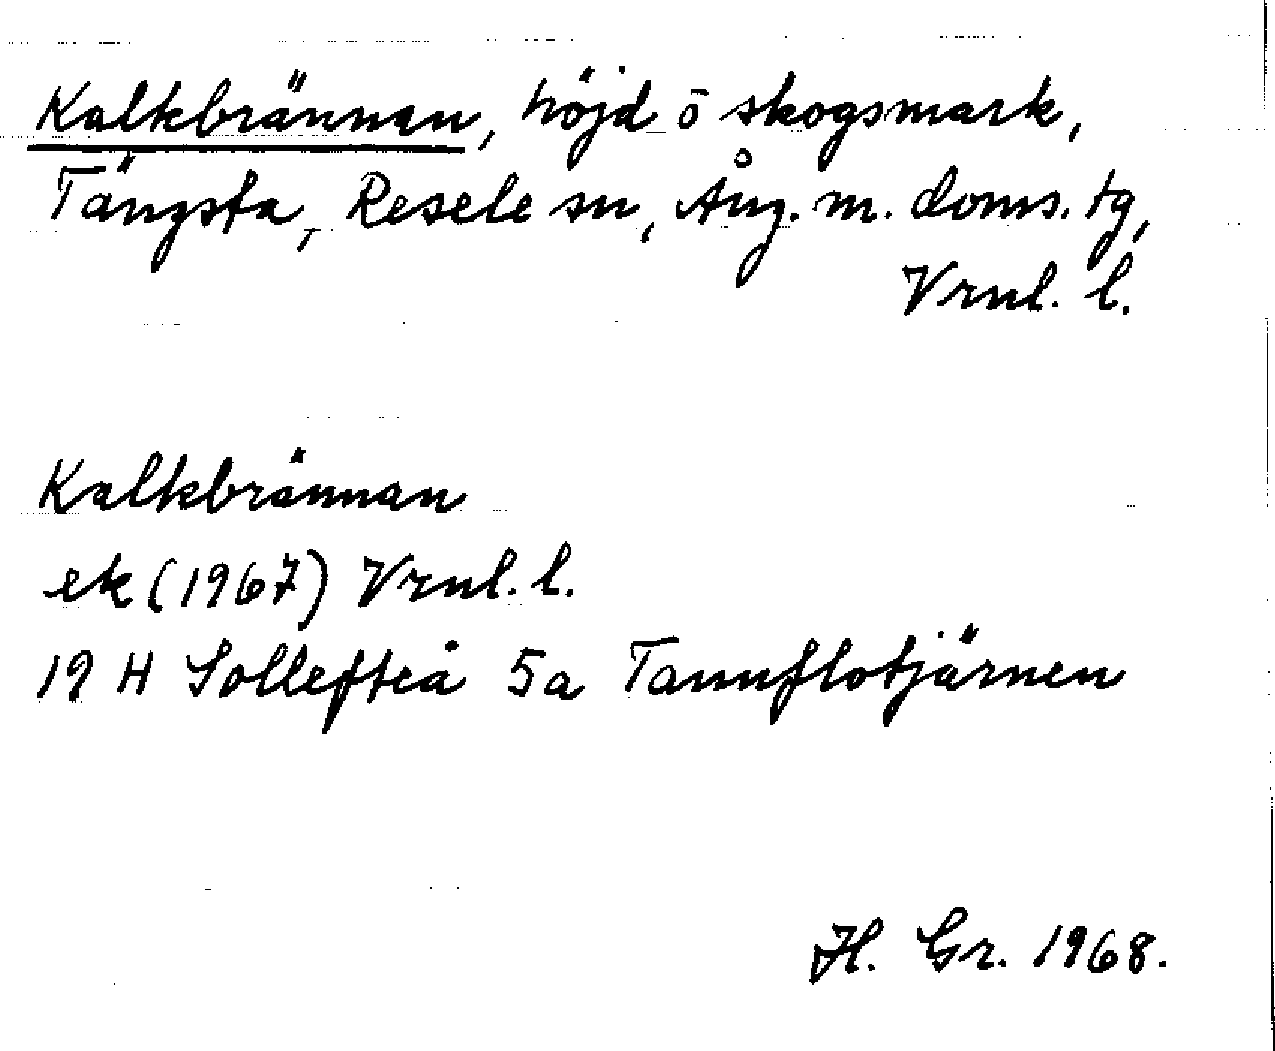 Kalkbrännan, höjd o skogsmark,
Tängsta, Resele sn, Ång. m. doms. tg,
Vrnl. l.
Kalkbrännan
ek (1967) Vrnl. l.
19 H Sollefteå 5a Tannflotjärnen
H. Gr. 1968.